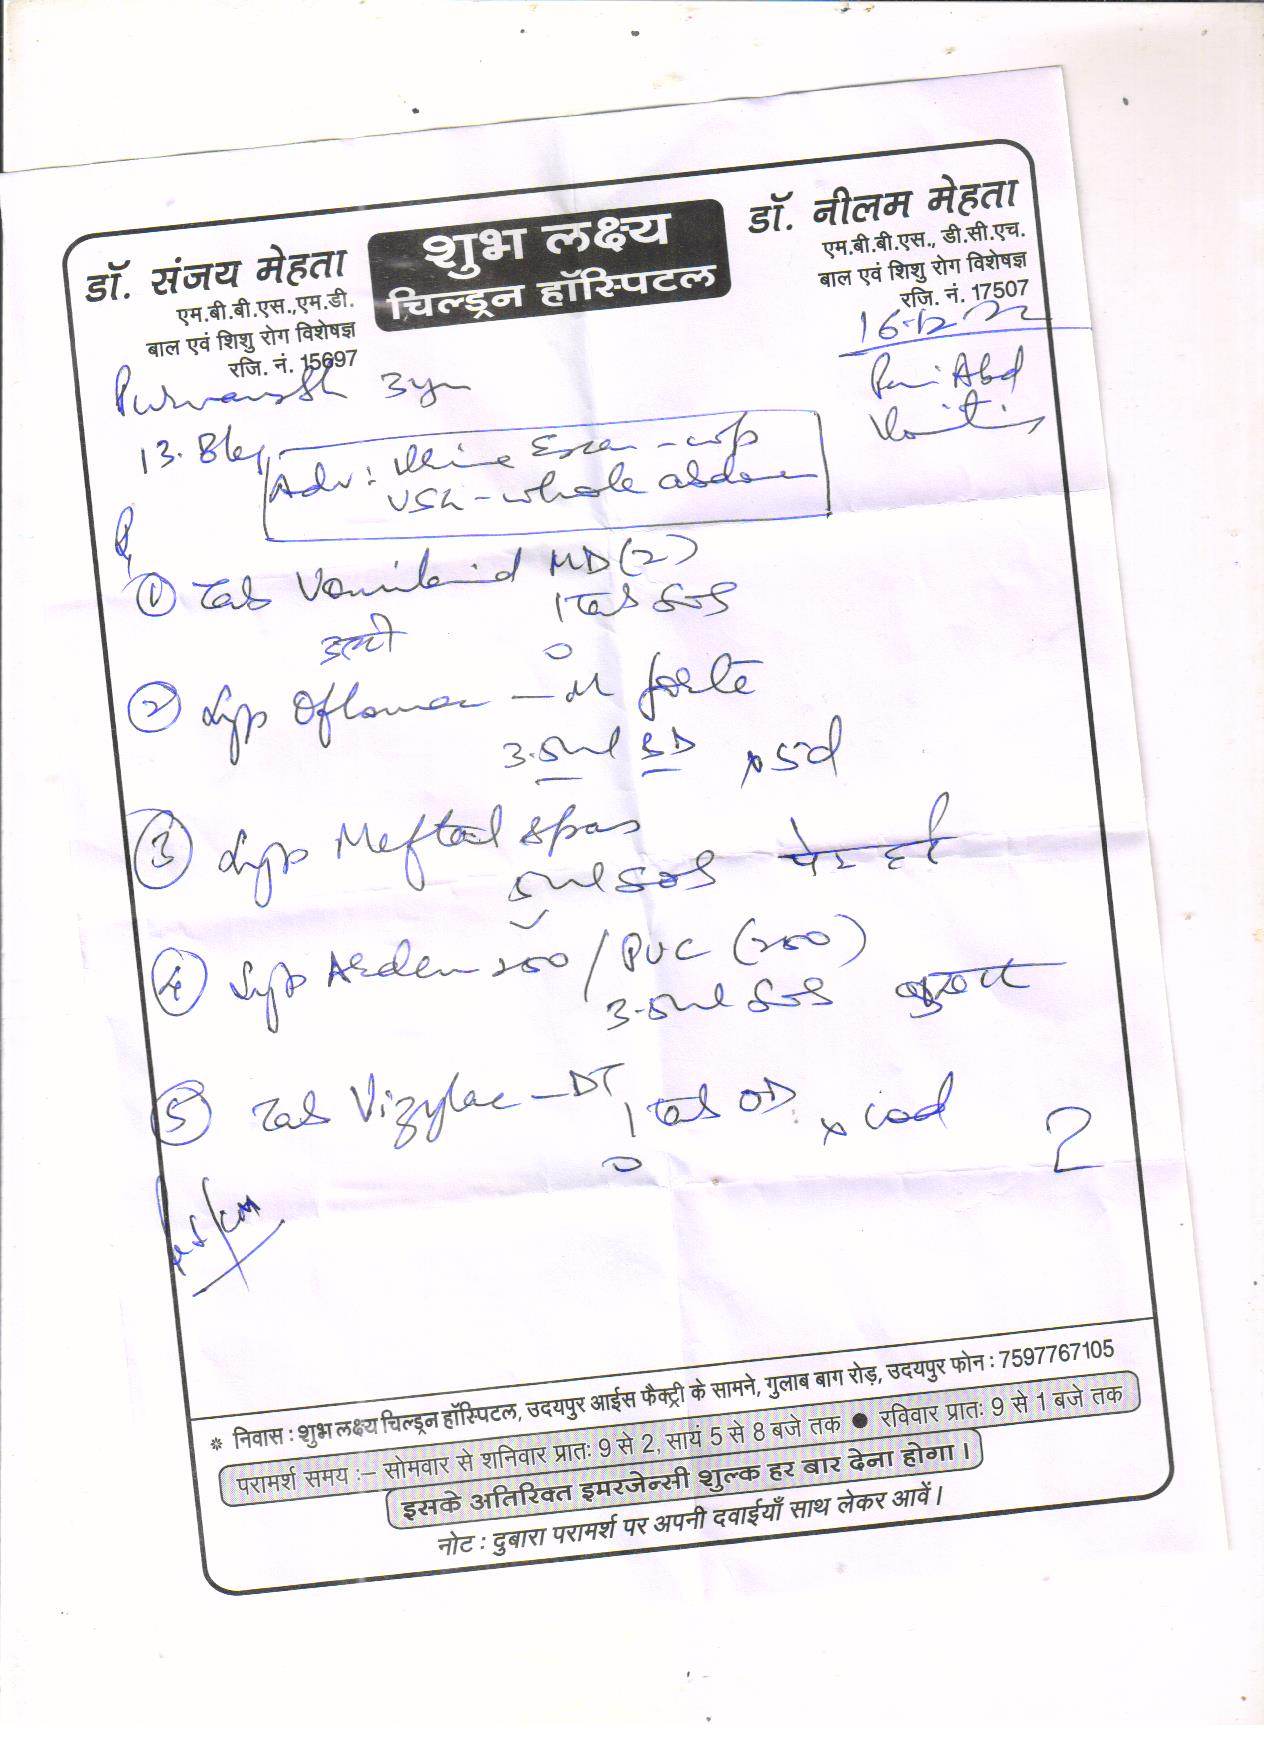 डॉ. संजय मेहता
एम.बी.बी.एस.,एम.डी.
बाल एवं शिशु रोग विशेषज्ञ
रजि. नं. 15697
शुभ लक्ष्य
चिल्ड्रन हॉस्पिटल
डॉ. नीलम मेहता
एम.बी.बी.एस., डी.सी.एच.
बाल एवं शिशु रोग विशेषज्ञ
रजि. नं. 17507
16-12-22
Purvansh 3yr
Pain Abd
Vomiting
13.8kg
Adv: Urine Exam -
USG - whole abdomen
① Tab MD (2)
1 Tab SOS
उल्टी
② Syp - M forte
3.5ml BD x 5d
③ Syp Meftal spas
5ml SOS पेट दर्द
④ Syp 250 / PUC (250)
3.5ml SOS बुखार
⑤ Tab Vizylac - DT
1 Tab OD x 10d
✻ निवास : शुभ लक्ष्य चिल्ड्रन हॉस्पिटल, उदयपुर आईस फैक्ट्री के सामने, गुलाब बाग रोड़, उदयपुर फोन : 7597767105
परामर्श समय :– सोमवार से शनिवार प्रातः 9 से 2, सायं 5 से 8 बजे तक ● रविवार प्रातः 9 से 1 बजे तक
इसके अतिरिक्त इमरजेन्सी शुल्क हर बार देना होगा ।
नोट : दुबारा परामर्श पर अपनी दवाईयाँ साथ लेकर आवें ।